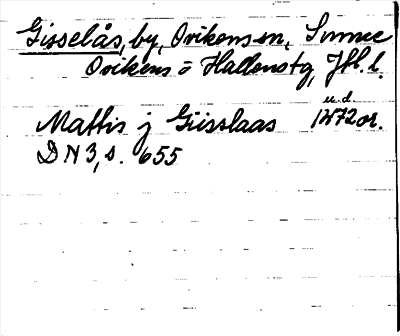 Gisselås, by, Ovikens sn, Sunne
Ovikens o Hallens tg, Jtl. l.
u. d.
Mattis j Giisslaas 1472 or.
DN 3, s. 655